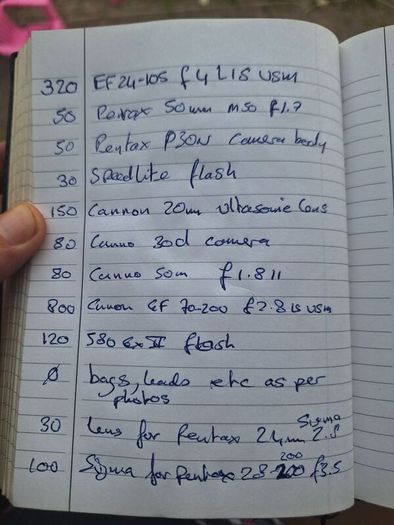 320 EF 24-105 f4 L IS USM
50 Pentax 50mm M50 f1.7
50 Pentax P30N camera body
30 Speedlite flash
150 Cannon 20m ultrasonic lens
80 Canno 30d camera
80 Canno 50m f1.8 II
800 Canon EF 70-200 f2.8 IS USM
120 580 Ex II flash
0 bags, leads etc as per
photos
Sigma
30 Lens for Pentax 24mm 2.8
200
100 Sigma for Pentax 28-200 f3.5